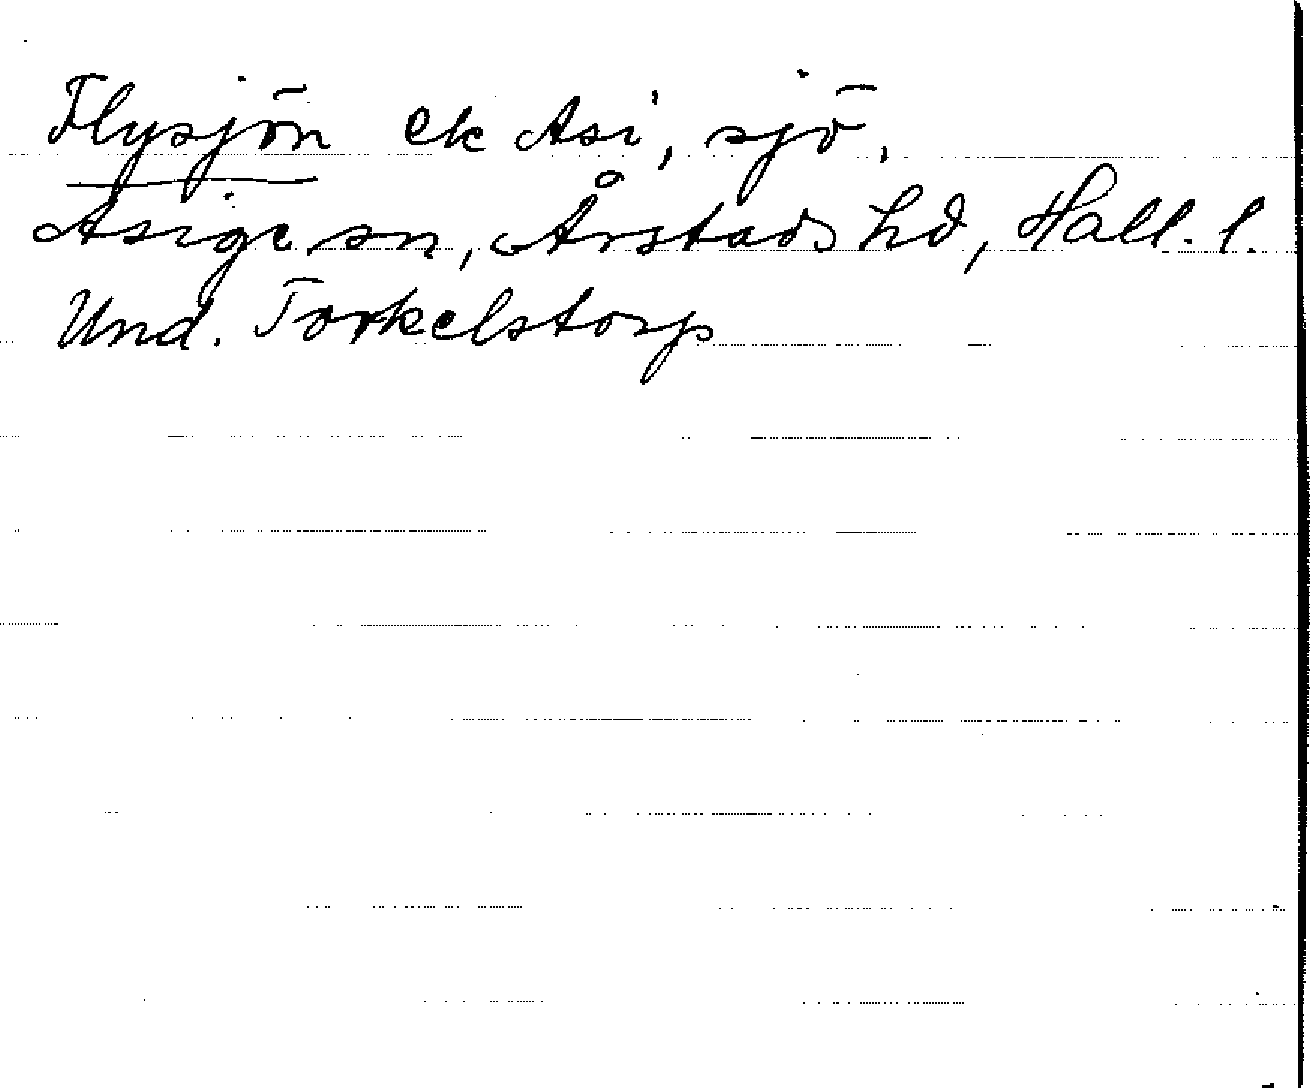 Flysjön ek Asi, sjö,
Asige sn, Årstads hd, Hall. l.
Und. Torkelstorp